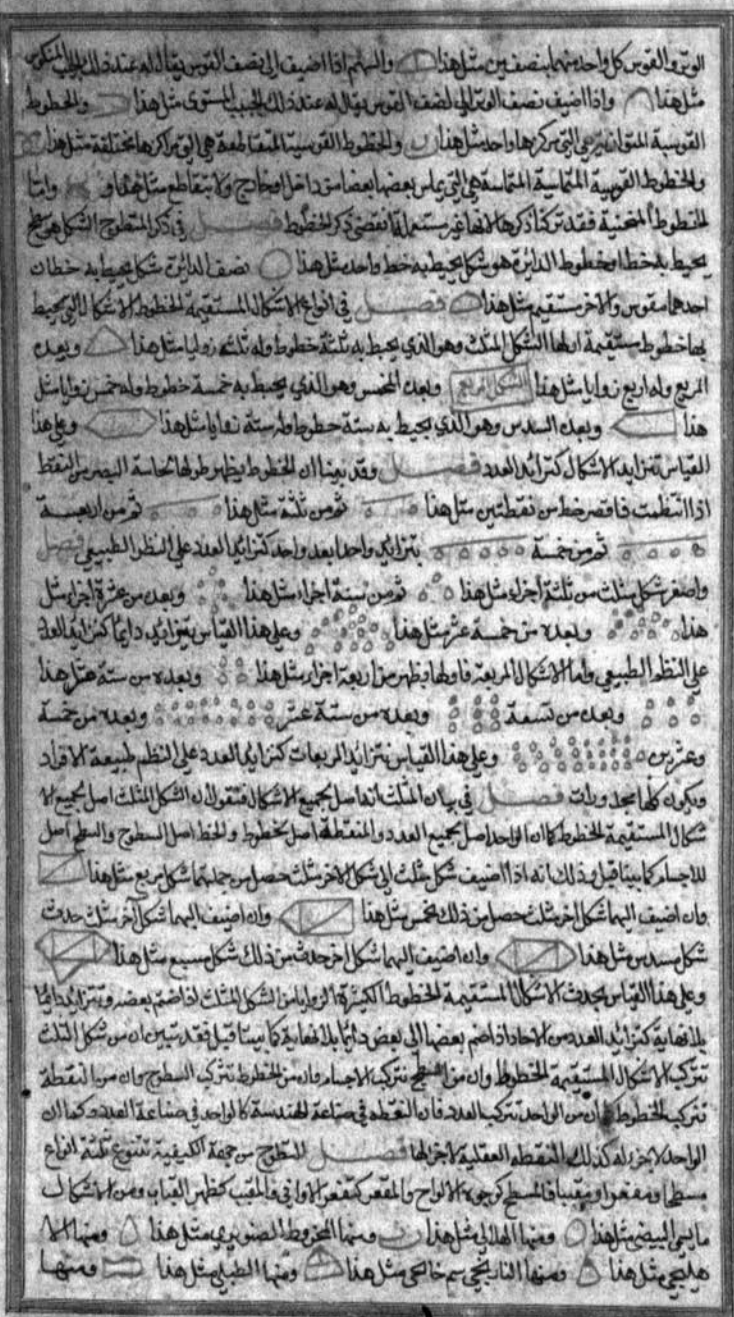 الوتر والقوس كل واحد منهما بنصفين مثل هذا والسهم اذا اضيف الى نصف القوس يقال له عند ذلك الجيب المنكوس
مثل هذا واذا اضيف نصف الوتر الى نصف القوس يقال له عند ذلك الجيب المستوى مثل هذا والخطوط
القوسية المتوازية هي التي مركزها واحد مثل هذا والخطوط القوسية المتقاطعة هي التي مراكزها مختلفة مثل هذا
والخطوط القوسية المتماسة هي التي يماس بعضها بعضا من داخل او خارج ولا يتقاطع مثل هذا و واما
الخطوط المنحنية فقد تركنا ذكرها لانها غير مستعملة انقضى ذكر الخطوط فصل في ذكر السطوح الشكل هو سطح
يحيط به خط او خطوط الدائرة هو شكل يحيط به خط واحد مثل هذا نصف الدائرة شكل يحيط به خطان
احدهما مقوس والاخر مستقيم مثل هذا فصل في انواع الاشكال المستقيمة الخطوط الاشكال التي يحيط
بها خطوط مستقيمة اولها الشكل المثلث وهو الذي يحيط به ثلثة خطوط وله ثلثه زوايا مثل هذا وبعده
المربع وله اربع زوايا مثل هذا الشكل المربع وبعده المخمس وهو الذي يحيط به خمسة خطوط وله خمس زوايا مثل
هذا وبعده المسدس وهو الذي يحيط به ستة خطوط وله ستة زوايا مثل هذا وعلى هذا
القياس تتزايد الاشكال كتزايد العدد فصل وقد بينا ان الخطوط يظهر طولها لحاسة البصر من النقط
اذا انتظمت فاقصر خط من نقطتين مثل هذا ثم من ثلثة مثل هذا ثم من اربعة
ثم من خمسة يتزايد واحدا بعد واحد كتزايد العدد على النظم الطبيعي فصل
واصغر شكل مثلث من ثلثة اجزاء مثل هذا ثم من ستة اجزاء مثل هذا وبعده من عشرة اجزاء مثل
هذا وبعده من خمسة عشر مثل هذا وعلى هذا القياس يتزايد دايما كتزايد العدد
على النظم الطبيعي واما الاشكال المربعة فاولها يظهر من اربعة اجزاء مثل هذا وبعده من ستة مثل هذا
وبعده من تسعة وبعده من ستة عشر وبعده من خمسة
وعشرين وعلى هذا القياس تتزايد المربعات كتزايد العدد على النظم طبيعة الافراد
ويكون كلها مجذورات فصل في بيان المثلث انه اصل لجميع الاشكال فنقول ان الشكل المثلث اصل لجميع الا
شكال المستقيمة الخطوط كما ان الواحد اصل لجميع العدد والنقطة اصل الخطوط والخط اصل السطوح والسطح اصل
للاجسام كما بينا قبل وذلك انه اذا اضيف شكل مثلث الى شكل اخر مثلث حصل من جملتهما شكل مربع مثل هذا
وان اضيف اليهما شكل اخر مثلث حصل من ذلك مخمس مثل هذا وان اضيف اليهما شكل آخر مثلث حدث
شكل مسدس مثل هذا وان اضيف اليهما شكل اخر حدث من ذلك شكل مسبع مثل هذا
وعلى هذا القياس يحدث الاشكال المستقيمة الخطوط الكثيرة الزوايا من الشكل المثلث اذا ضم بعضه وتتزايد دايما
بلا نهاية كتزايد العدد من الاحاد اذا ضم بعضها الى بعض دائما بلا نهاية كما بينا قبل فقد تبين ان من شكل المثلث
تتركب الاشكال المستقيمة الخطوط وان من السطح تتركب الاجسام وان من الخطوط تتركب السطوح وان من النقطة
تتركب الخطوط كما ان من الواحد تتركب العدد فان النقطه في صناعة الهندسة كالواحد في صناعة العدد وكما ان
الواحد لا جزء له كذلك النقطه العقلية لا جزء لها فصل السطوح من جهة الكيفية تتنوع ثلثة انواع
مسطحا ومقعرا ومقببا فالمسطح كوجوه الالواح والمقعر كتقعر الاواني والمقبب كظهر القباب ومن الاشكال
ما يسمى البيضي مثل هذا ومنها الهلالي مثل هذا ومنها المخروط الصنوبري مثل هذا ومنها الا
هليلجي مثل هذا ومنها النارنجي مثل هذا ومنها الطبلي مثل هذا ومنها